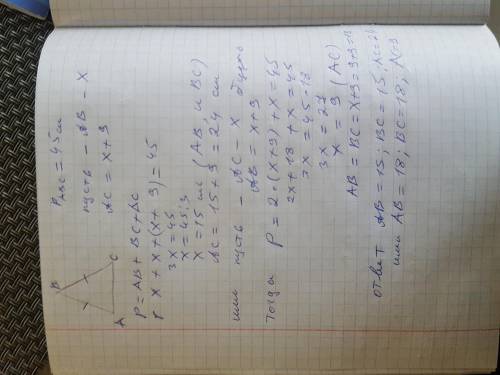 B
A
C
P_ABC = 45 см
пусть - AB - x
AC = x + 9
P = AB + BC + AC
x + x + (x + 9) = 45
3x = 45
x = 45:3
x = 15 см (AB, и BC)
AC = 15 + 9 = 24 см
или пусть - AC - x
AB = x + 9
Тогда P = 2·(x+9) + x = 45
2x + 18 + x = 45
3x = 45 - 18
3x = 27
x = 9 (AC)
AB = BC = x+9 = 9+9 = 18
ответ AB = 15; BC = 15; AC = 24
или AB = 18; BC = 18; AC = 9